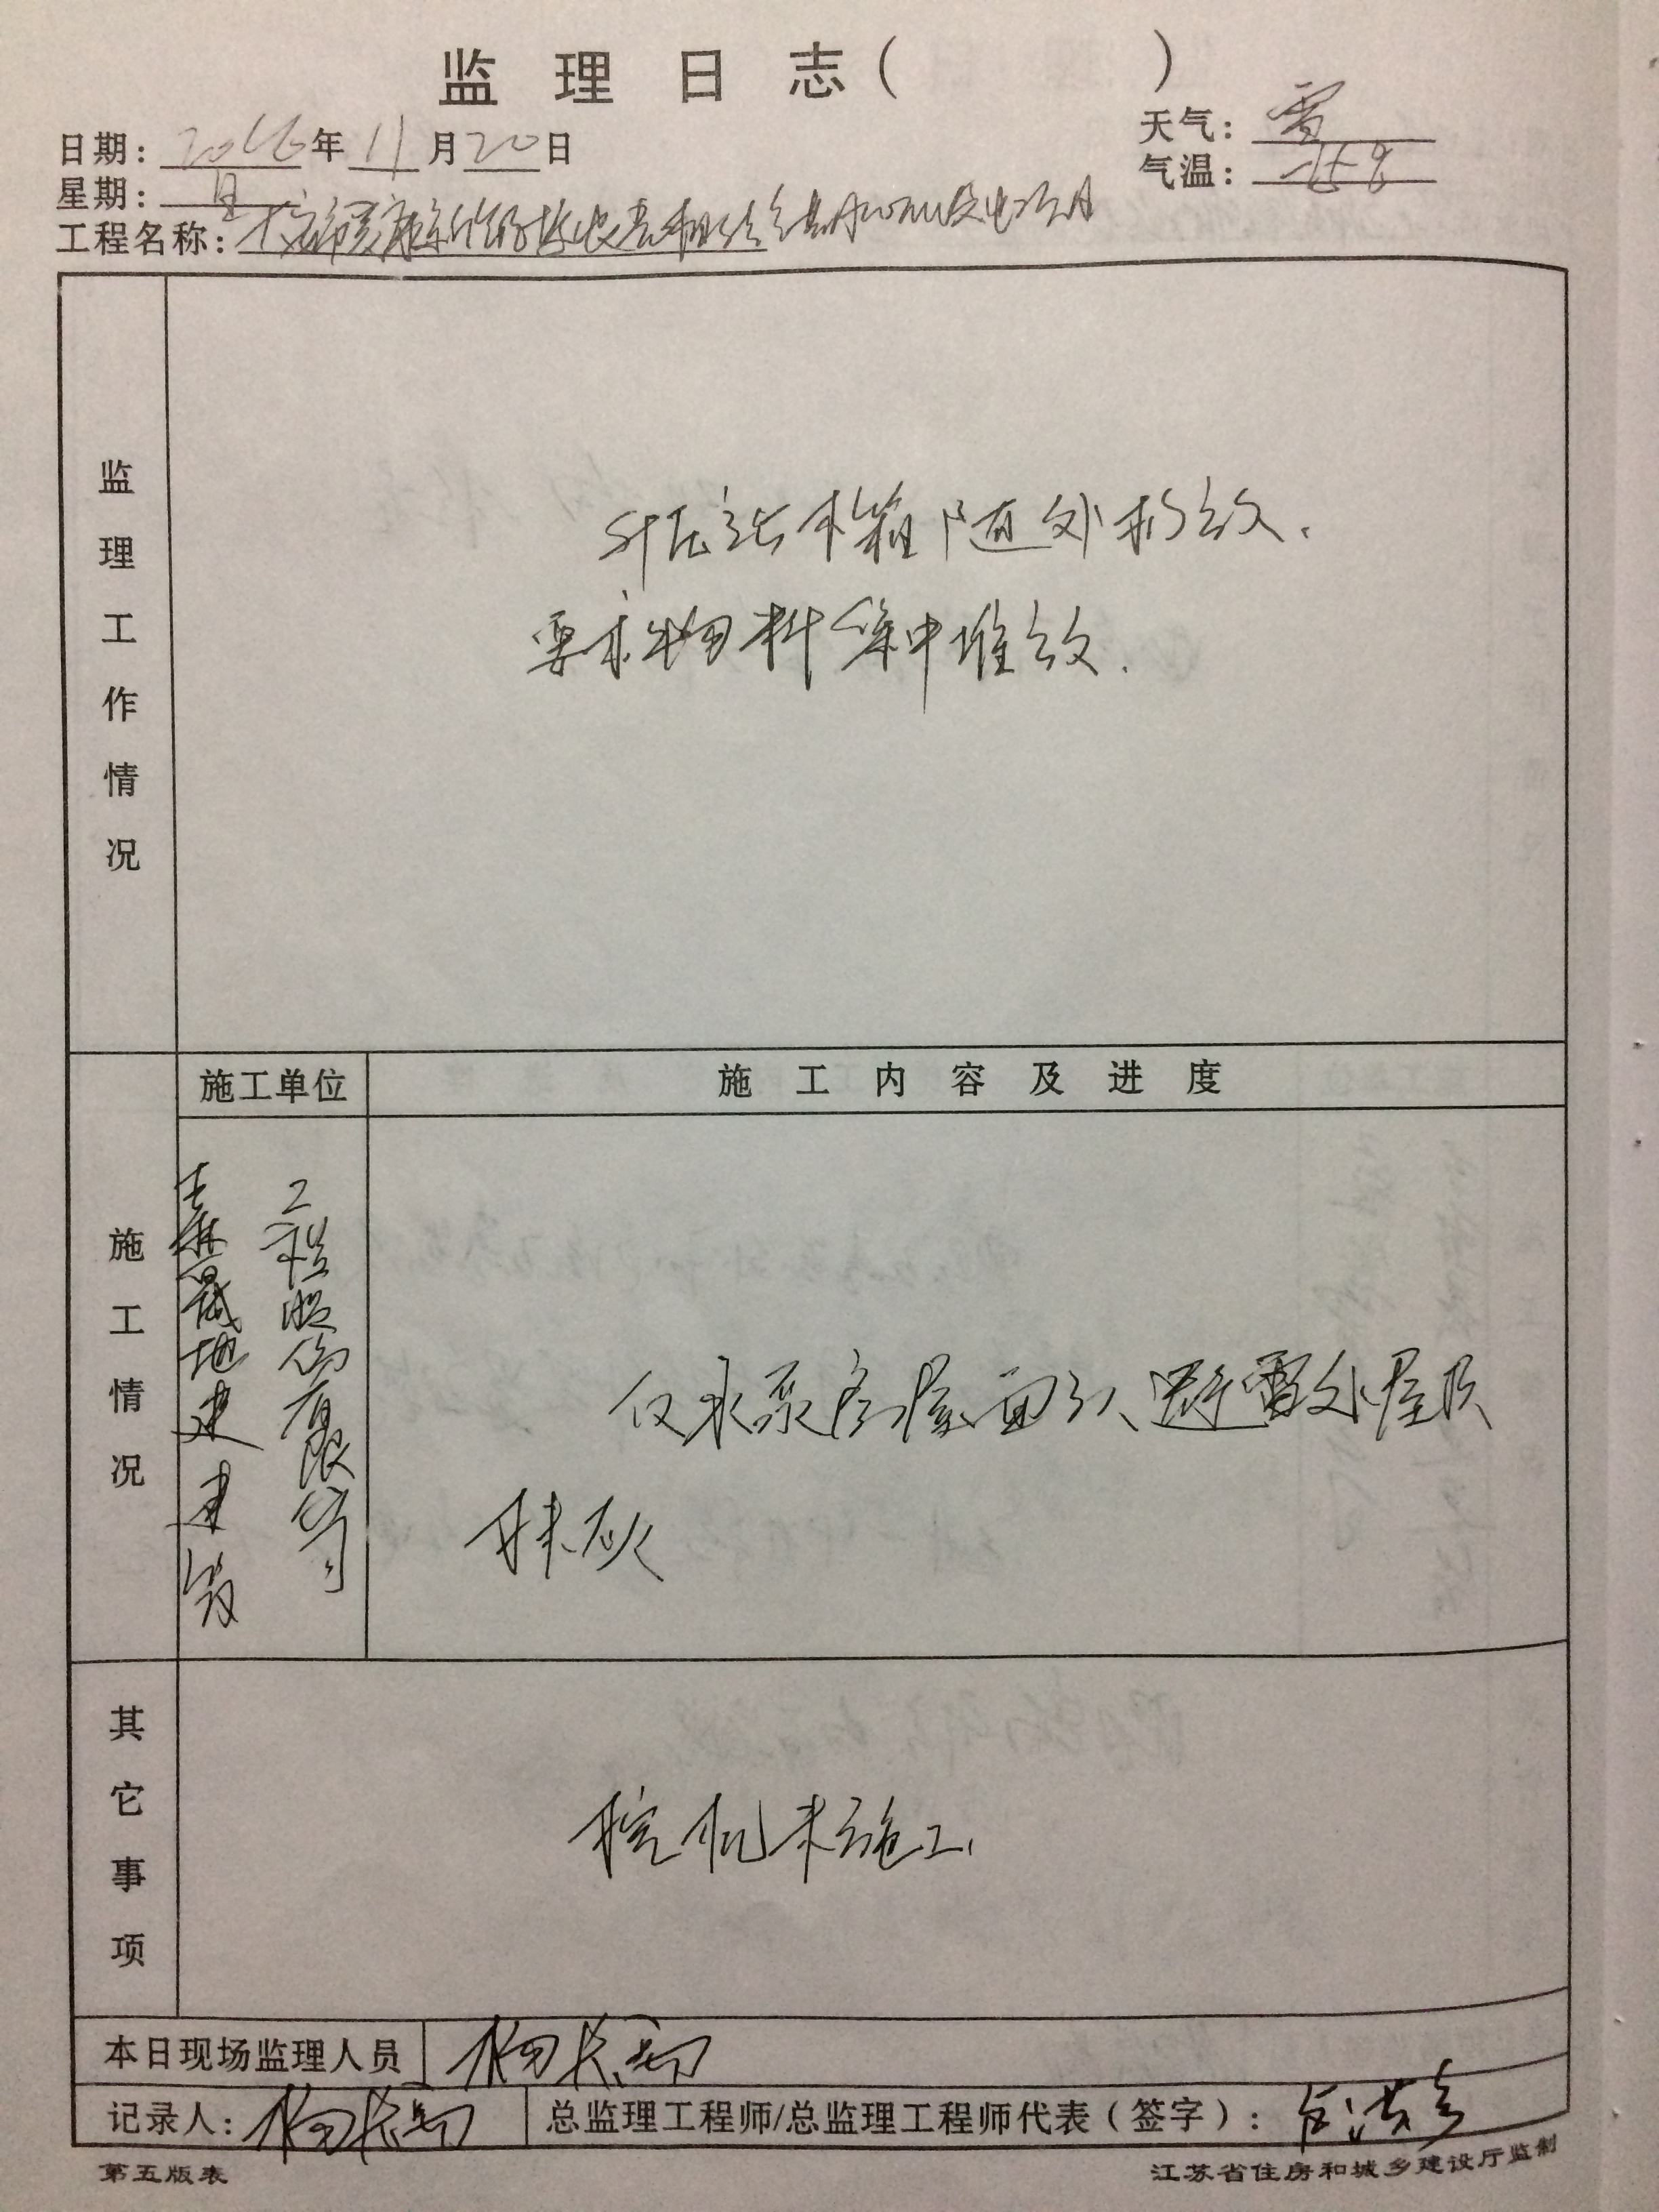 监理日志(          )
日期: 2016年 11月20日
天气: 雪
星期: 日
气温:
工程名称:
监理工作情况
升压站木箱随处摆放.
要求物料集中堆放.
施工单位
施工内容及进度
施工情况
地建建筑
工程股份有限公司
仅水泵房屋面引入避雷处屋顶
抹灰
其它事项
挖机未施工
本日现场监理人员
记录人:
总监理工程师/总监理工程师代表(签字):
第五版表
江苏省住房和城乡建设厅监制